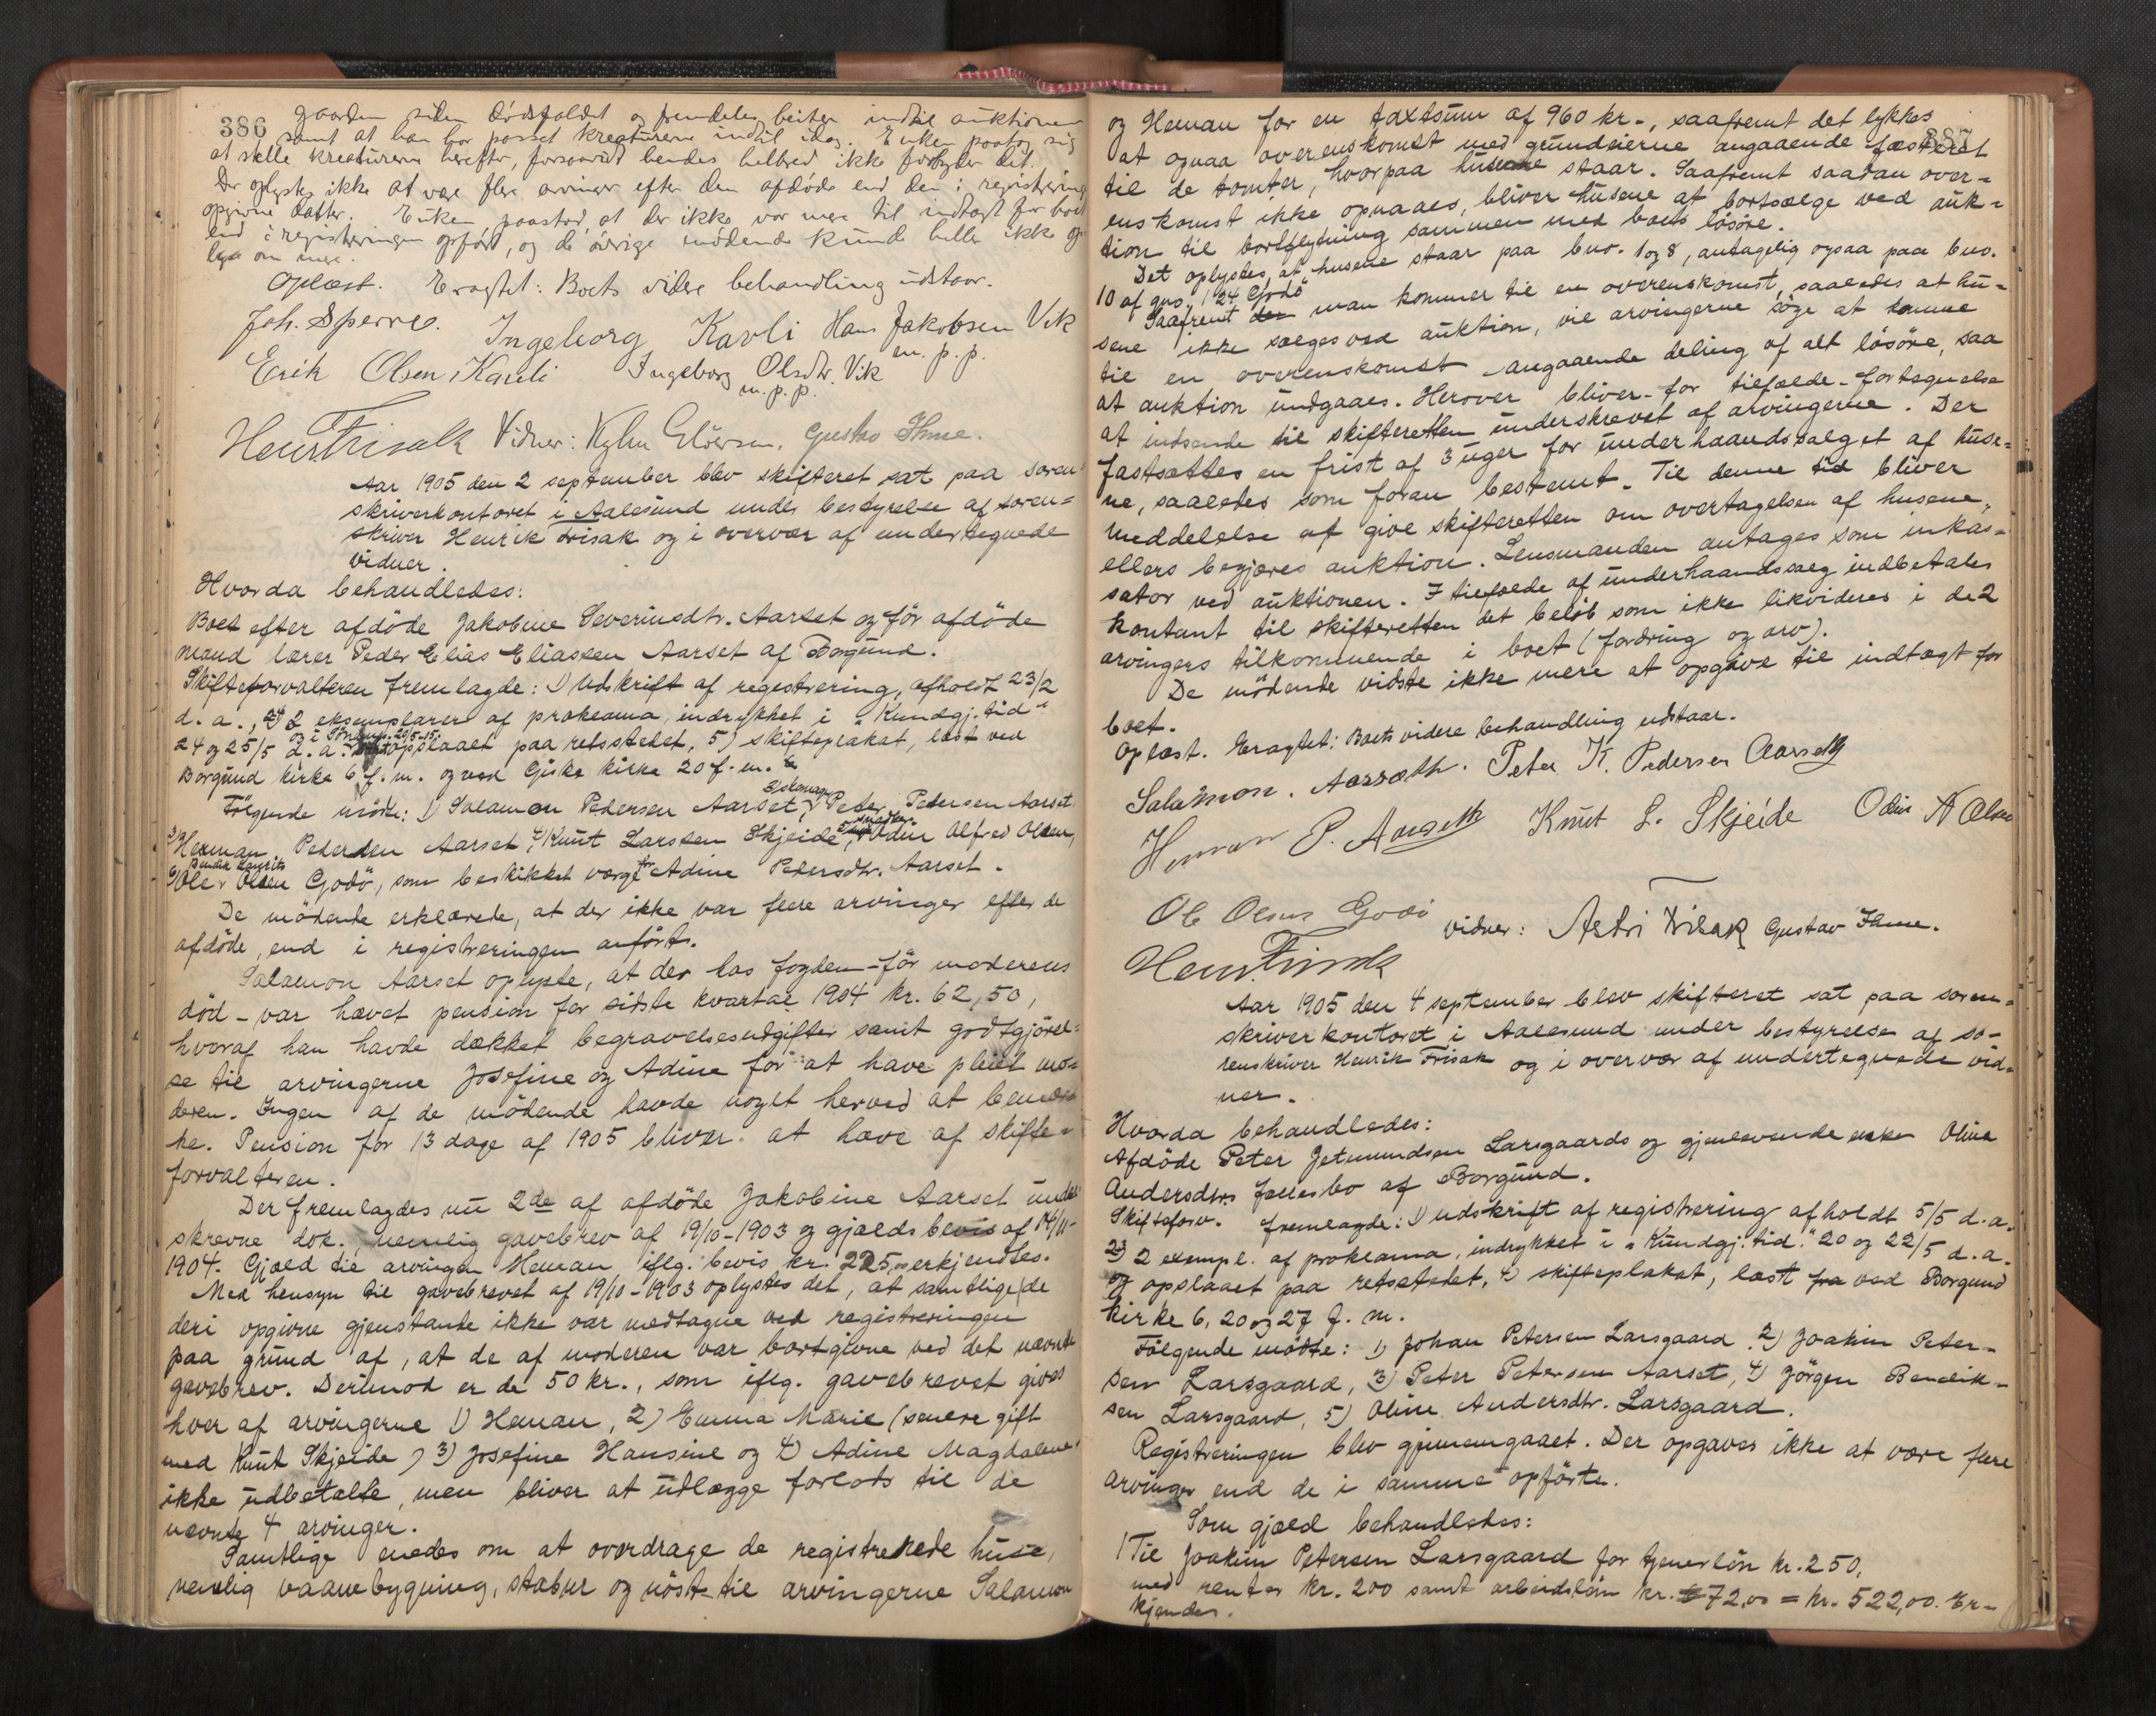 386
gaarden siden dödsfaldet og fremdeles beiter indtil auktionen
samt at han har passet kreaturerne indtil idag. Enken paatog sig
at stelle kreaturerne herefter, forsaavidt hendes helbred ikke forbyder det.
Der oplystes ikke at være flere arvinger efter den afdöde end den i registrering
opgivne datter. Enken paastod, at der ikke var mere til indtægt for boet
end i registreringen opført, og de övrige mødende kunde heller ikke op
lyse om mere.
Oplæst. Eragtet: Boets videre behandling udstaar.
Joh. Sperre. Ingeborg Karli Hans Jakobsen Vik
m. p. p.
Erik Olsen Karli Ingeborg Olsdtr. Vik
m. p. p.
Henr Frisak Vidner: Gustav Ihme.
Aar 1905 den 2 september blev skifteret sat paa soren
skriverkontoret i Aalesund under bestyrelse af soren=
skriver Henrik Frisak og i overvær af undertegnede
vidner.
Hvorda behandledes:
Boet efter afdöde Jakobine Severinsdtr. Aarset og för afdöde
mand lærer Peder Elias Eliassen Aarset af Borgund.
Skifteforvalteren fremlagde: 1) Udskrift af registrering, afholdt 23/2
d. a., 2) 2 eksemplarer af proklama, indrykket i "Kundgj. tid"
24 og 25/5 d. a. opslaaet paa retsstedet, 5) skifteplakat, læst ved
Borgund kirke 6 f. m. og ved Giske kirke 20 f. m.
Følgende mödte: 1) Salamon Pedersen Aarset, 2) Peter Pedersen Aarset
3) Herman Pedersen Aarset, 4) Knut Larssen Skjeide, Odin Alfred Olsen,
6) Ole Bendik Laurits Olsen Godö, som beskikket værge for Adine Pedersdtr. Aarset.
De mödende erklærede, at der ikke var flere arvinger efter de
afdöde, end i registreringen anförte.
Salamon Aarset oplyste, at der hos fogden - för moderens
död - var hævet pension for sidste kvartal 1904 kr. 62,50,
hvoraf han havde dækket begravelsesudgifter samt godtgjörel=
se til arvingerne Josefine og Adine for at have pleiet mo=
deren. Ingen af de mödende havde noget herved at bemær
ke. Pension for 13 dage af 1905 bliver at hæve af skifte=
forvalteren.
Der fremlagdes nu 2de af afdöde Jakobine Aarset under
skrevne dok. nemlig gavebrev af 19/10-1903 og gjældsbevis af 14/11-
1904. Gjæld til arvingen Herman iflg. bevis kr. 225,00 erkjendtes.
Med hensyn til gavebrevet af 19/10-1903 oplystes det, at samtlige de
deri opgivne gjenstande ikke var medtagne ved registreringen
paa grund af, at de af moderen var bortgivne ved det nævnte
gavebrev. Derimod er de 50 kr., som iflg. gavebrevet gives
hver af arvingerne 1) Herman, 2) Emma Marie (senere gift
med Knut Skjeide) 3) Josefine Hansine og 4) Adine Magdalene
ikke udbetalte, men bliver at udlægge forlods til de
nævnte 4 arvinger.
Samtlige enedes om at overdrage de registrerede huse,
nemlig vaanebygning, stabur og nöst til arvingerne Salamon
387
og Herman for en taxtsum af 960 kr., saafremt det lykkes
at opnaa overenskomst med grundeierne angaaende fæsteret
til de tomter, hvorpaa husene staar. Saafremt saadan over=
enskomst ikke opnaaes, bliver husene at bortsælge ved auk=
tion til bortflytning sammen med boets lösöre.
Det oplystes, at husene staar paa bno. 1 og 8, antagelig ogsaa paa bno.
10 af gno. 124 Godö
Saafremt man kommer til en overenskomst, saaledes at hu=
sene ikke sælges ved auktion, vil arvingerne söge at komme
til en overenskomst angaaende deling af alt lösöre, saa
at auktion undgaaes. Herover bliver for tilfælde fortegnelse
at indsende til skifteretten underskrevet af arvingerne. Der
fastsættes en frist af 3 uger for underhaandssalget af huse=
ne, saaledes som foran bestemt. Til denne tid bliver
meddelelse at give skifteretten om overtagelsen af husene,
ellers begjæres auktion. Lensmanden antages som inkas=
sator ved auktionen. I tilfælde af underhaandssalg indbetales
kontant til skifteretten det beløb som ikke likvideres i de 2
arvingers tilkommende i boet (fordring og arv).
De mödende vidste ikke mere at opgive til indtægt for
boet.
Oplæst. Eragtet: Boets videre behandling udstaar.
Salamon. Aarseth. Peter K. Pedersen Aarseth
Herman P. Aarseth Knut L. Skjeide Odin A Olsen
Ole Olsen Godö vidner: Astri Frisak Gustav Ihme.
Henr Frisak
Aar 1905 den 4 september blev skifteret sat paa soren=
skriverkontoret i Aalesund under bestyrelse af so=
renskriver Henrik Frisak og i overvær af undertegnede vid=
ner.
Hvorda behandledes:
Afdöde Peter Jetmundsen Larsgaards og gjenlevende enke Oline
Andersdtrs fællesbo af Borgund.
Skifteforv. fremlagde: 1) udskrift af registrering afholdt 5/5 d. a.
2) 2 exempl. af proklama, indrykket i "Kundgj. tid." 20 og 22/5 d. a.
og opslaaet paa retsstedet, 4) skifteplakat, læst ved Borgund
kirke 6, 20 og 27 f. m.
Følgende mödte: 1) Johan Petersen Larsgaard 2) Joakim Peter=
sen Larsgaard, 3) Peter Petersen Aarset, 4) Jörgen Bendik=
sen Larsgaard, 5) Oline Andersdtr. Larsgaard.
Registreringen blev gjennemgaaet. Der opgaves ikke at være flere
arvinger end de i samme opförte.
Som gjæld behandledes:
1 Til Joakim Petersen Larsgaard for tjenerlön kr. 250,
med renter kr. 200 samt arbeidslön kr. 72,00 = kr. 522,00. Er=
kjendes.